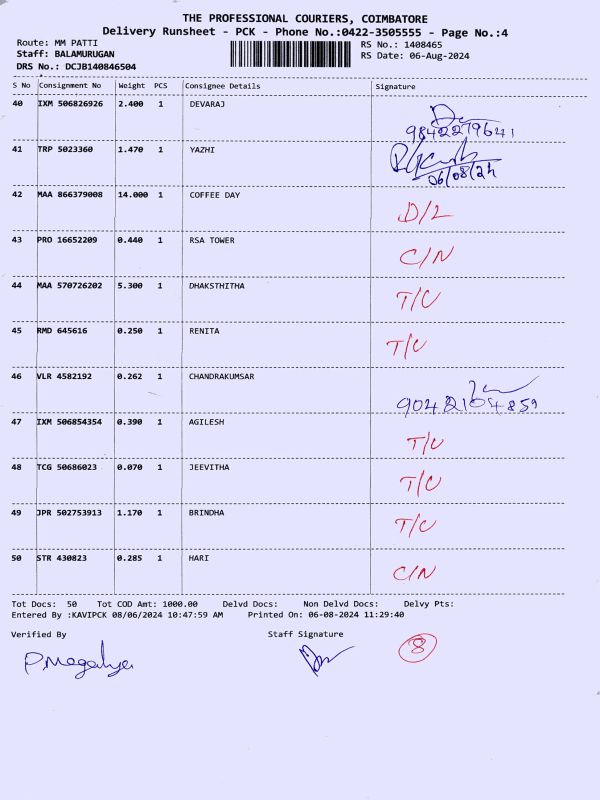 THE PROFESSIONAL COURIERS, COIMBATORE
Delivery Runsheet - PCK - Phone No.:0422-3505555 - Page No.:4
Route: MM PATTI
RS No.: 1408465
Staff: BALAMURUGAN
RS Date: 06-Aug-2024
DRS No.: DCJB140846504
S No Consignment No Weight PCS Consignee Details Signature
40 IXM 506826926 2.400 1 DEVARAJ
9842279641
41 TRP 5023360 1.470 1 YAZHI
06/08/24
42 MAA 866379008 14.000 1 COFFEE DAY D/L
43 PRO 16652209 0.440 1 RSA TOWER C/N
44 MAA 570726202 5.300 1 DHAKSTHITHA T/C
45 RMD 645616 0.250 1 RENITA T/C
46 VLR 4582192 0.262 1 CHANDRAKUMSAR
9042104859
47 IXM 506854354 0.390 1 AGILESH T/C
48 TCG 50686023 0.070 1 JEEVITHA T/C
49 JPR 502753913 1.170 1 BRINDHA T/C
50 STR 430823 0.285 1 HARI C/N
Tot Docs: 50 Tot COD Amt: 1000.00 Delvd Docs: Non Delvd Docs: Delvy Pts:
Entered By :KAVIPCK 08/06/2024 10:47:59 AM Printed On: 06-08-2024 11:29:40
Verified By Staff Signature 8